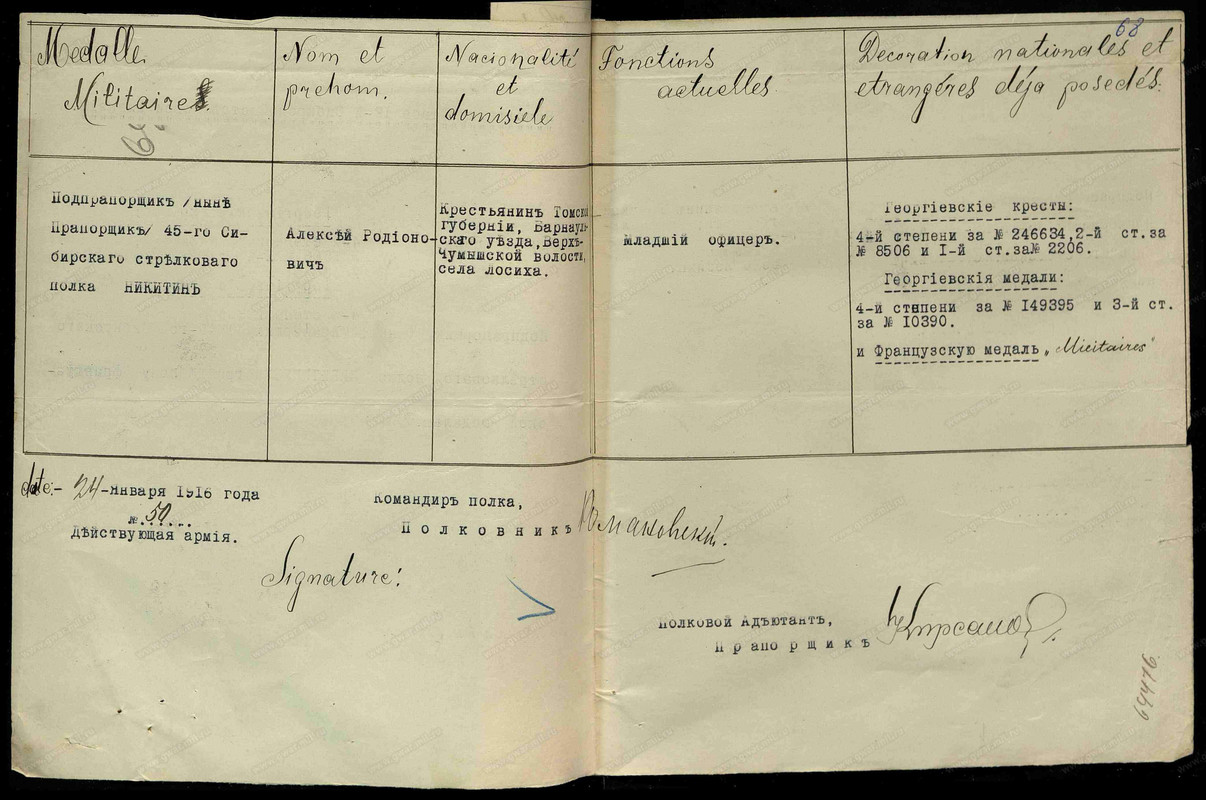 68
Medalle
Militaire
Nom et
prehom.
Nacionalité
et
domisiele
Fonctions
actuelles
Decoration nationales et
etrangéres déja posedés.
Подпрапорщикъ /нынѣ
Прапорщикъ/ 45-го Си-
бирскаго стрѣлковаго
полка НИКИТИНЪ
Алексѣй Родіоно-
вичъ
Крестьянинъ Томской
губерніи, Барнауль-
скаго уѣзда, Верхъ-
Чумышской волости,
села Лосиха.
Младшій офицеръ.
Георгіевскіе кресты:
4-й степени за № 246634,2-й ст.за
№ 8506 и I-й ст.за№ 2206.
Георгіевскія медали:
4-й степени за № I49395 и 3-й ст.
за № I0390.
и Французскую медаль „Micitaires"
date:- 24-Января 1916 года
№ 50
Дѣйствующая армія.
Командиръ полка,
Полковникъ
Signature:
Полковой Адъютантъ,
Прапорщикъ Кирсановъ
69476.